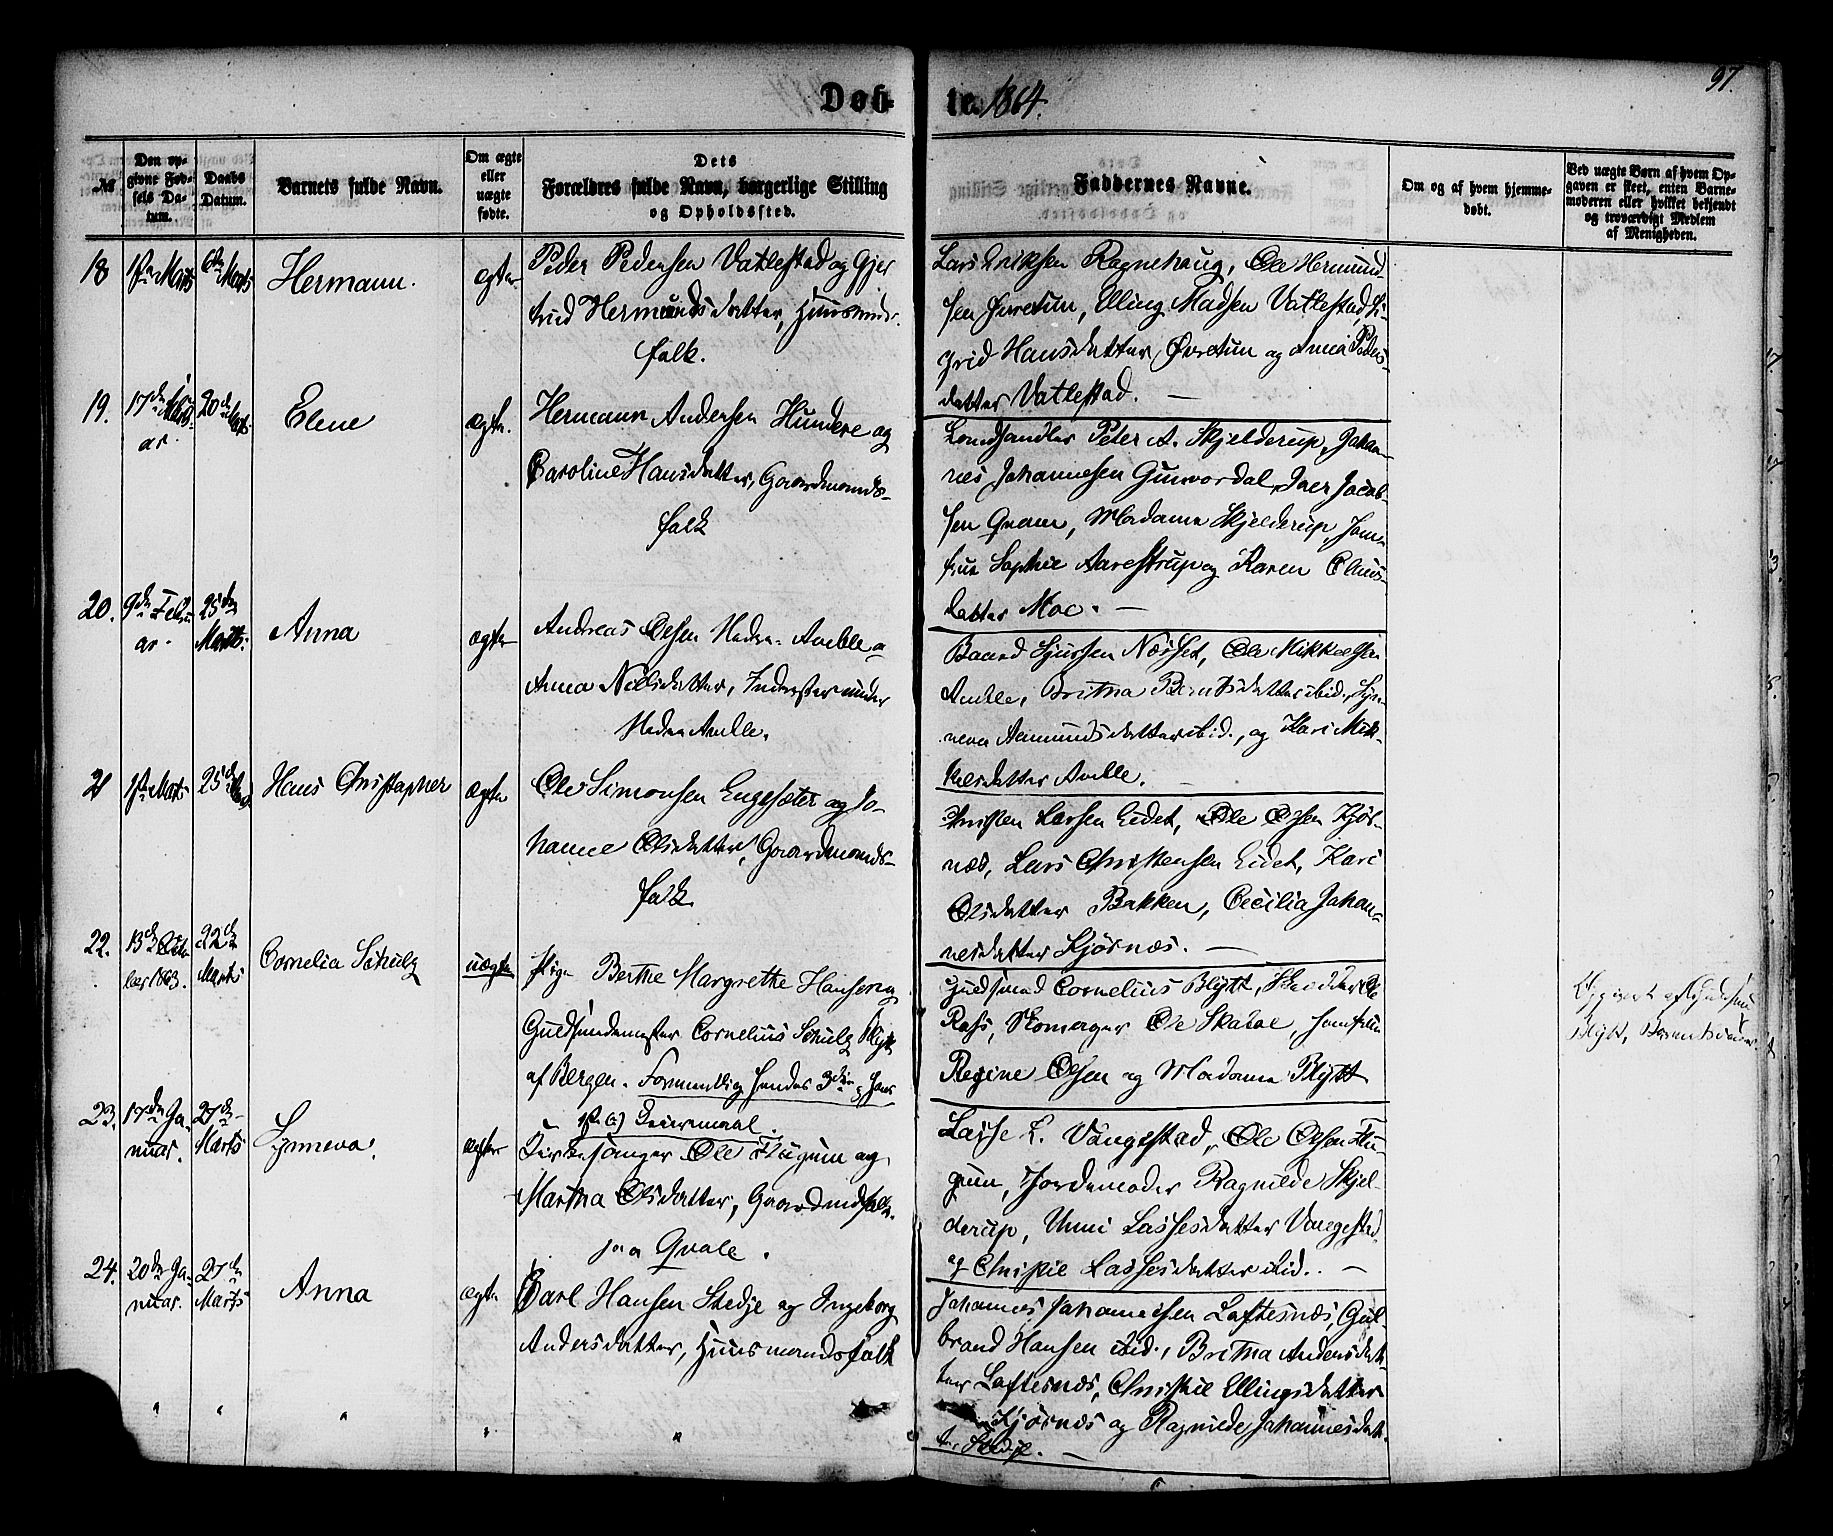 97.
Døb-
te. 1864.
№
Den op-
givne Fød-
sels Da-
tum.
Daabs
Datum.
Barnets fulde Navn.
Om ægte
eller
uægte
fødte.
Dets
Forældres fulde Navn, borgerlige Stilling
og Opholdssted.
Faddernes Navne.
Om og af hvem hjemme-
døbt.
Ved uægte Børn af hvem Op-
gaven er skeet, enten Barne-
moderen eller hvilket bekjendt
og troværdigt Medlem
af Menigheden.
18
1ste Marts
6te Marts
Hermann.
ægte
Peder Pedersen Vatlestad og Gjer
trud Hermundsdatter, Huusmands
folk.
Lars Eriksen Ragnehaug, Ole Hermund
sen Øvretun, Elling Madsen Vatlestad, Si-
grid Hansdatter Øvretun og Anna Peders
datter Vatlestad. —
19.
17de
ar.
20de Marts
Elene
ægte.
Hermann Andersen Hundere og
Caroline Hansdatter, Gaardmands-
folk
Landhandler Peter A. Skjelderup, Johan-
nes Johannesen Gunvordal, Iver Jacob
sen Qvam, Madame Skjelderup, Jom-
frue Sophie Aarestrup og Karen Claus-
datter Moe. —
20.
9de Febru
ar.
25de
Marts.
Anna
ægte
Andreas Olsen Nedre-Amble og
Anna Nielsdatter, Inderster under
Nedre Amble.
Baard Sjursen Næsset, Ole Mikkelsen
Amble, Britha Berntsdatter ibid., Syn-
neva Aamundsdatter ibid., og Kari Mik-
kelsdatter Amble. —
21
1ste Marts
25de
Hans Christopher
ægte
Ole Simonsen Engesæter og Jo-
hanne Olsdatter, Gaardmands-
folk
Christen Larsen Eidet, Ole Olsen Kjør-
næs, Lars Christensen Eidet, Kari
Olsdatter Bakken, Cecilia Johan-
nesdatter Kjørnæs. —
22.
13de Octo
ber 1863.
22de
Marts
Cornelia Schulz
uægte
Pige Berthe Margrethe Hansen og
Guldsmedmester Cornelius Schulz Blytt
af Bergen. Formentlig hendes 3die, hans
1ste(?) Leiermaal.
Guldsmed Cornelius Blytt, Skrædder Ole
Røhs, Skomager Ole Skaloe, Jomfru
Regine Olsen og Madame Blytt
Opgivet af Guldsmed
Blytt, Barnefader.
23.
17de Ja-
nuar.
27de
Marts
Synneva.
ægte
Kirkesanger Ole Flugum og
Martha Olsdatter, Gaardmdsfolk
paa Qvale.
Lasse L. Vangestad, Ole Olsen Flu-
gum, Jordemoder Ragnilde Skjel-
derup, Unni Lassesdatter Vangestad
og Christie Lassesdatter ibid. —
24.
20de Ja-
nuar.
27de
Marts
Anna
ægte
Carl Hansen Stedje og Ingeborg
Andersdatter, Huusmandsfolk
Johannes Johannesen Loftesnæs, Gul-
brand Hansen ibid., Britha Andersdat-
ter Loftesnæs, Christie Ellingsdatter
Kjørnæs og Ragnilde Johannesdat-
ter Stedje. —
" " " " "